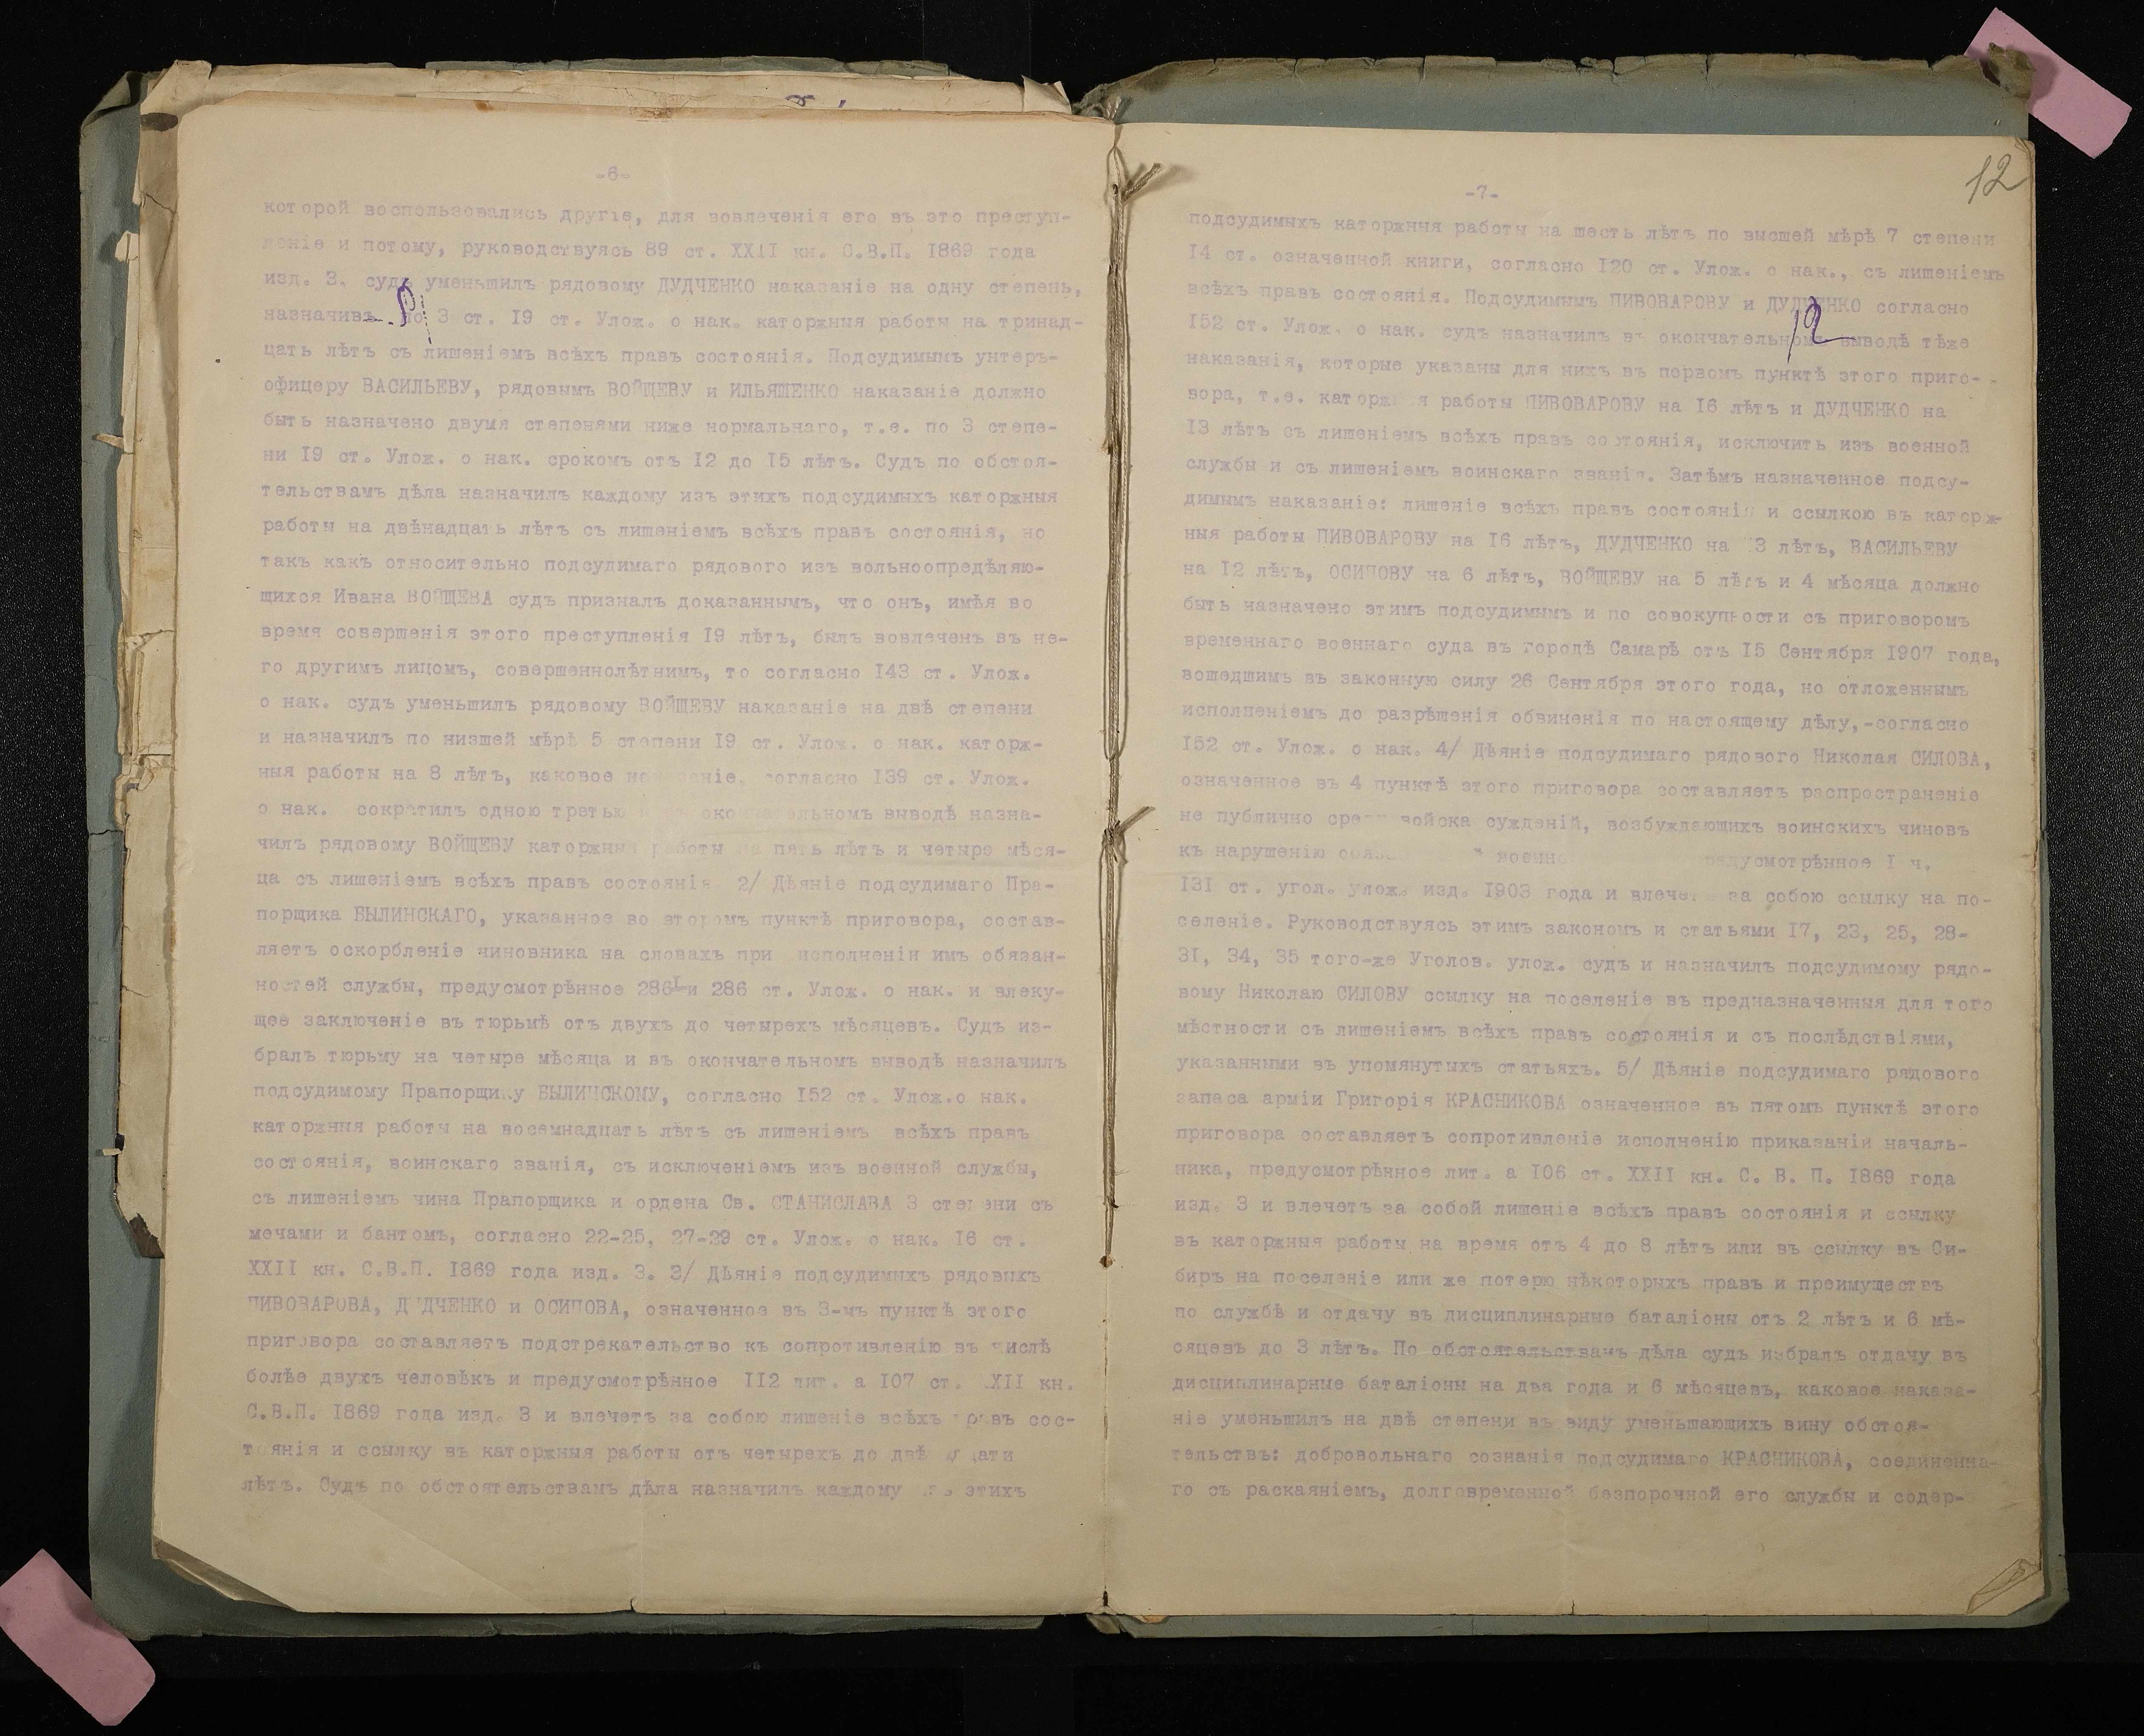 -6-
которой воспользовались другіе, для вовлеченія его въ это преступ-
леніе и потому, руководствуясь 89 ст. XXII кн. С.В.П. 1869 года
изд. 3. судъ уменьшилъ рядовому ДУДЧЕНКО наказаніе на одну степень,
назначивъ по 3 ст. 19 ст. Улож. о нак. каторжныя работы на тринад-
цать лѣтъ съ лишеніемъ всѣхъ правъ состоянія. Подсудимымъ унтеръ-
офицеру ВАСИЛЬЕВУ, рядовымъ ВОЙЩЕВУ и ИЛЬЯШЕНКО наказаніе должно
быть назначено двумя степенями ниже нормальнаго, т.е. по 3 степе-
ни 19 ст. Улож. о нак. срокомъ отъ 12 до 15 лѣтъ. Судъ по обстоя-
тельствамъ дѣла назначилъ каждому изъ этихъ подсудимыхъ каторжныя
работы на двѣнадцать лѣтъ съ лишеніемъ всѣхъ правъ состоянія, но
такъ какъ относительно подсудимаго рядового изъ вольноопредѣляю-
щихся Ивана ВОЙЩЕВА судъ призналъ доказаннымъ, что онъ, имѣя во
время совершенія этого преступленія 19 лѣтъ, былъ вовлеченъ въ не-
го другимъ лицомъ, совершеннолѣтнимъ, то согласно 143 ст. Улож.
о нак. судъ уменьшилъ рядовому ВОЙЩЕВУ наказаніе на двѣ степени
и назначилъ по низшей мѣрѣ 5 степени 19 ст. Улож. о нак. каторж-
ныя работы на 8 лѣтъ, каковое согласно 139 ст. Улож.
о нак. сократилъ одною третью окончательномъ выводѣ назна-
чилъ рядовому ВОЙЩЕВУ каторжныя работы на пять лѣтъ и четыре мѣся-
ца съ лишеніемъ всѣхъ правъ состоянія 2/ Дѣяніе подсудимаго Пра-
порщика БЫЛИНСКАГО, указанное во второмъ пунктѣ приговора, состав-
ляетъ оскорбленіе чиновника на словахъ при исполненіи имъ обязан-
ностей службы, предусмотрѣнное 286¹ и 286 ст. Улож. о нак. и влеку-
щее заключеніе въ тюрьмѣ отъ двухъ до четырехъ мѣсяцевъ. Судъ из-
бралъ тюрьму на четыре мѣсяца и въ окончательномъ выводѣ назначилъ
подсудимому Прапорщику БЫЛИНСКОМУ, согласно 152 ст. Улож.о нак.
каторжныя работы на восемнадцать лѣтъ съ лишеніемъ всѣхъ правъ
состоянія, воинскаго званія, съ исключеніемъ изъ военной службы,
съ лишеніемъ чина Прапорщика и ордена Св. СТАНИСЛАВА 3 степени съ
мечами и бантомъ, согласно 22-25, 27-29 ст. Улож. о нак. 16 ст.
XXII кн. С.В.П. 1869 года изд. 3. 3/ Дѣяніе подсудимыхъ рядовыхъ
ПИВОВАРОВА, ДУДЧЕНКО и ОСИПОВА, означенное въ 3-мъ пунктѣ этого
приговора составляетъ подстрекательство къ сопротивленію въ числѣ
болѣе двухъ человѣкъ и предусмотрѣнное 112 лит. а 107 ст. XXII кн.
С.В.П. 1869 года изд. 3 и влечетъ за собою лишеніе всѣхъ правъ сос-
тоянія и ссылку въ каторжныя работы отъ четырехъ до двѣнадцати
лѣтъ. Судъ по обстоятельствамъ дѣла назначилъ каждому изъ этихъ
12
-7-
подсудимыхъ каторжныя работы на шесть лѣтъ по высшей мѣрѣ 7 степени
14 ст. означенной книги, согласно 120 ст. Улож. о нак., съ лишеніемъ
всѣхъ правъ состоянія. Подсудимымъ ПИВОВАРОВУ и ДУДЧЕНКО согласно
152 ст. Улож. о нак. судъ назначилъ въ окончательномъ выводѣ тѣже
12
наказанія, которые указаны для нихъ въ первомъ пунктѣ этого приго-
вора, т.е. каторжныя работы ПИВОВАРОВУ на 16 лѣтъ и ДУДЧЕНКО на
13 лѣтъ съ лишеніемъ всѣхъ правъ состоянія, исключить изъ военной
службы и съ лишеніемъ воинскаго званія. Затѣмъ назначенное подсу-
димымъ наказаніе: лишеніе всѣхъ правъ состоянія и ссылкою въ каторж-
ныя работы ПИВОВАРОВУ на 16 лѣтъ, ДУДЧЕНКО на 13 лѣтъ, ВАСИЛЬЕВУ
на 12 лѣтъ, ОСИПОВУ на 6 лѣтъ, ВОЙЩЕВУ на 5 лѣтъ и 4 мѣсяца должно
быть назначено этимъ подсудимымъ и по совокупности съ приговоромъ
временнаго военнаго суда въ городѣ Самарѣ отъ 15 Сентября 1907 года,
вошедшимъ въ законную силу 26 Сентября этого года, но отложеннымъ
исполненіемъ до разрѣшенія обвиненія по настоящему дѣлу,-согласно
152 ст. Улож. о нак. 4/ Дѣяніе подсудимаго рядового Николая СИЛОВА,
означенное въ 4 пунктѣ этого приговора составляетъ распространеніе
не публично среди войска сужденій, возбуждающихъ воинскихъ чиновъ
къ нарушенію предусмотрѣнное 1 ч.
131 ст. угол. улож. изд. 1903 года и влечетъ за собою ссылку на по-
селеніе. Руководствуясь этимъ закономъ и статьями 17, 23, 25, 28-
31, 34, 35 того-же Уголов. улож. судъ и назначилъ подсудимому рядо-
вому Николаю СИЛОВУ ссылку на поселеніе въ предназначенныя для того
мѣстности съ лишеніемъ всѣхъ правъ состоянія и съ послѣдствіями,
указанными въ упомянутыхъ статьяхъ. 5/ Дѣяніе подсудимаго рядового
запаса арміи Григорія КРАСНИКОВА означенное въ пятомъ пунктѣ этого
приговора составляетъ сопротивленіе исполненію приказаній началь-
ника, предусмотрѣнное лит. а 106 ст. XXII кн. С. В. П. 1869 года
изд. 3 и влечетъ за собой лишеніе всѣхъ правъ состоянія и ссылку
въ каторжныя работы на время отъ 4 до 8 лѣтъ или въ ссылку въ Си-
бирь на поселеніе или же потерю нѣкоторыхъ правъ и преимуществъ
по службѣ и отдачу въ дисциплинарные баталіоны отъ 2 лѣтъ и 6 мѣ-
сяцевъ до 3 лѣтъ. По обстоятельствамъ дѣла судъ избралъ отдачу въ
дисциплинарные баталіоны на два года и 6 мѣсяцевъ, каковое наказа-
ніе уменьшилъ на двѣ степени въ виду уменьшающихъ вину обстоя-
тельствъ: добровольнаго сознанія подсудимаго КРАСНИКОВА, соединенна-
го съ раскаяніемъ, долговременной безпорочной его службы и содер-